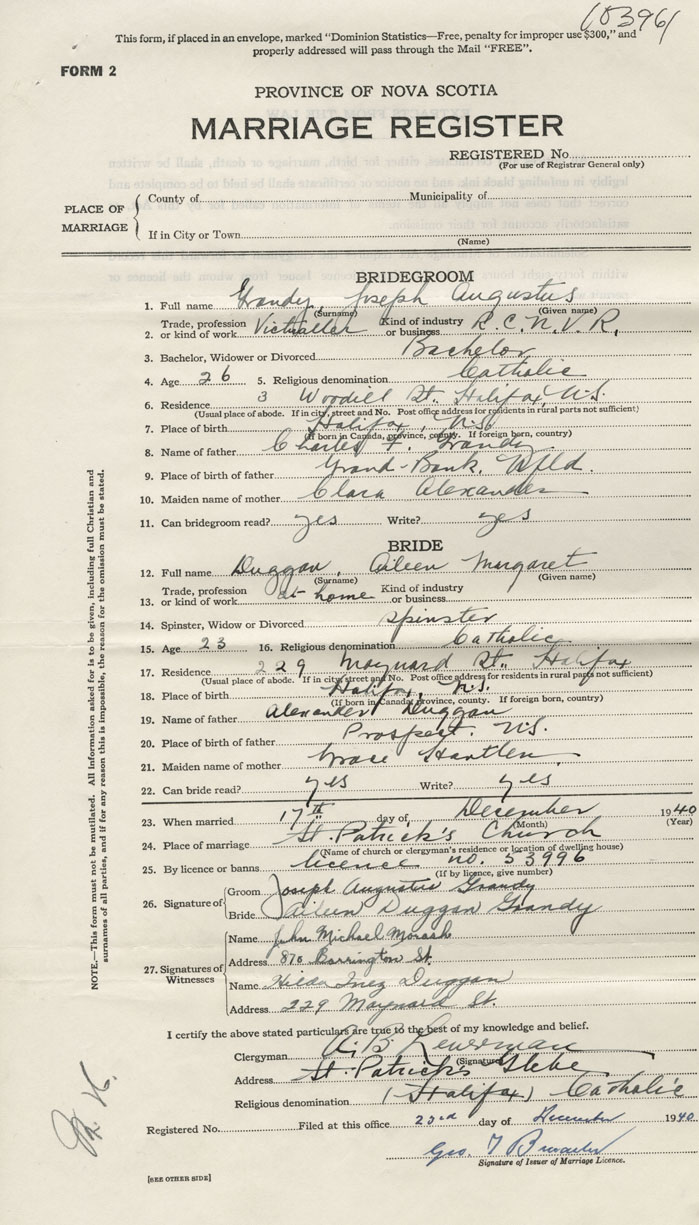 10396
This form, if placed in an envelope, marked "Dominion Statistics—Free, penalty for improper use $300," and
properly addressed will pass through the Mail "FREE".
FORM 2
PROVINCE OF NOVA SCOTIA
MARRIAGE REGISTER
REGISTERED No.
(For use of Registrar General only)
PLACE OF MARRIAGE
County of Municipality of
If in City or Town
(Name)
BRIDEGROOM
1. Full name Grandy, Joseph Augustus
(Surname) (Given name)
2. Trade, profession or kind of work Victualler Kind of industry or business R.C.N.V.R.
3. Bachelor, Widower or Divorced Bachelor
4. Age 26 5. Religious denomination Catholic
6. Residence 3 Woodill St. Halifax N.S.
(Usual place of abode. If in city, street and No. Post office address for residents in rural parts not sufficient)
7. Place of birth Halifax, N.S.
(If born in Canada, province, county. If foreign born, country)
8. Name of father Charles F. Grandy
9. Place of birth of father Grand-Bank, Nfld.
10. Maiden name of mother Clara Alexander
11. Can bridegroom read? yes Write? yes
BRIDE
12. Full name Duggan, Aileen Margaret
(Surname) (Given name)
13. Trade, profession or kind of work at home Kind of industry or business
14. Spinster, Widow or Divorced spinster
15. Age 23 16. Religious denomination Catholic
17. Residence 229 Maynard St., Halifax
(Usual place of abode. If in city street and No. Post office address for residents in rural parts not sufficient)
18. Place of birth Halifax, N.S.
(If born in Canada province, county. If foreign born, country)
19. Name of father Alexander Duggan
20. Place of birth of father Prospect. N.S.
21. Maiden name of mother Grace Hartlen
22. Can bride read? yes Write? yes
23. When married 17th day of December 1940
(Month) (Year)
24. Place of marriage St. Patrick's Church
(Name of church or clergyman's residence or location of dwelling house)
25. By licence or banns licence no. 53996
(If by licence, give number)
26. Signature of
Groom Joseph Augustus Grandy
Bride Aileen Duggan Grandy
27. Signatures of Witnesses
Name John Michael Morash
Address 876 Barrington St.
Name Hilda Inez Duggan
Address 229 Maynard St.
I certify the above stated particulars are true to the best of my knowledge and belief.
Clergyman A. B.
(Signature)
Address St. Patrick's Glebe
Religious denomination (Halifax) Catholic
Registered No. Filed at this office 23rd day of December 1940
Geo. T
Signature of Issuer of Marriage Licence.
[SEE OTHER SIDE]
NOTE.—This form must not be mutilated. All information asked for is to be given, including full Christian and
surnames of all parties, and if for any reason this is impossible, the reason for the omission must be stated.